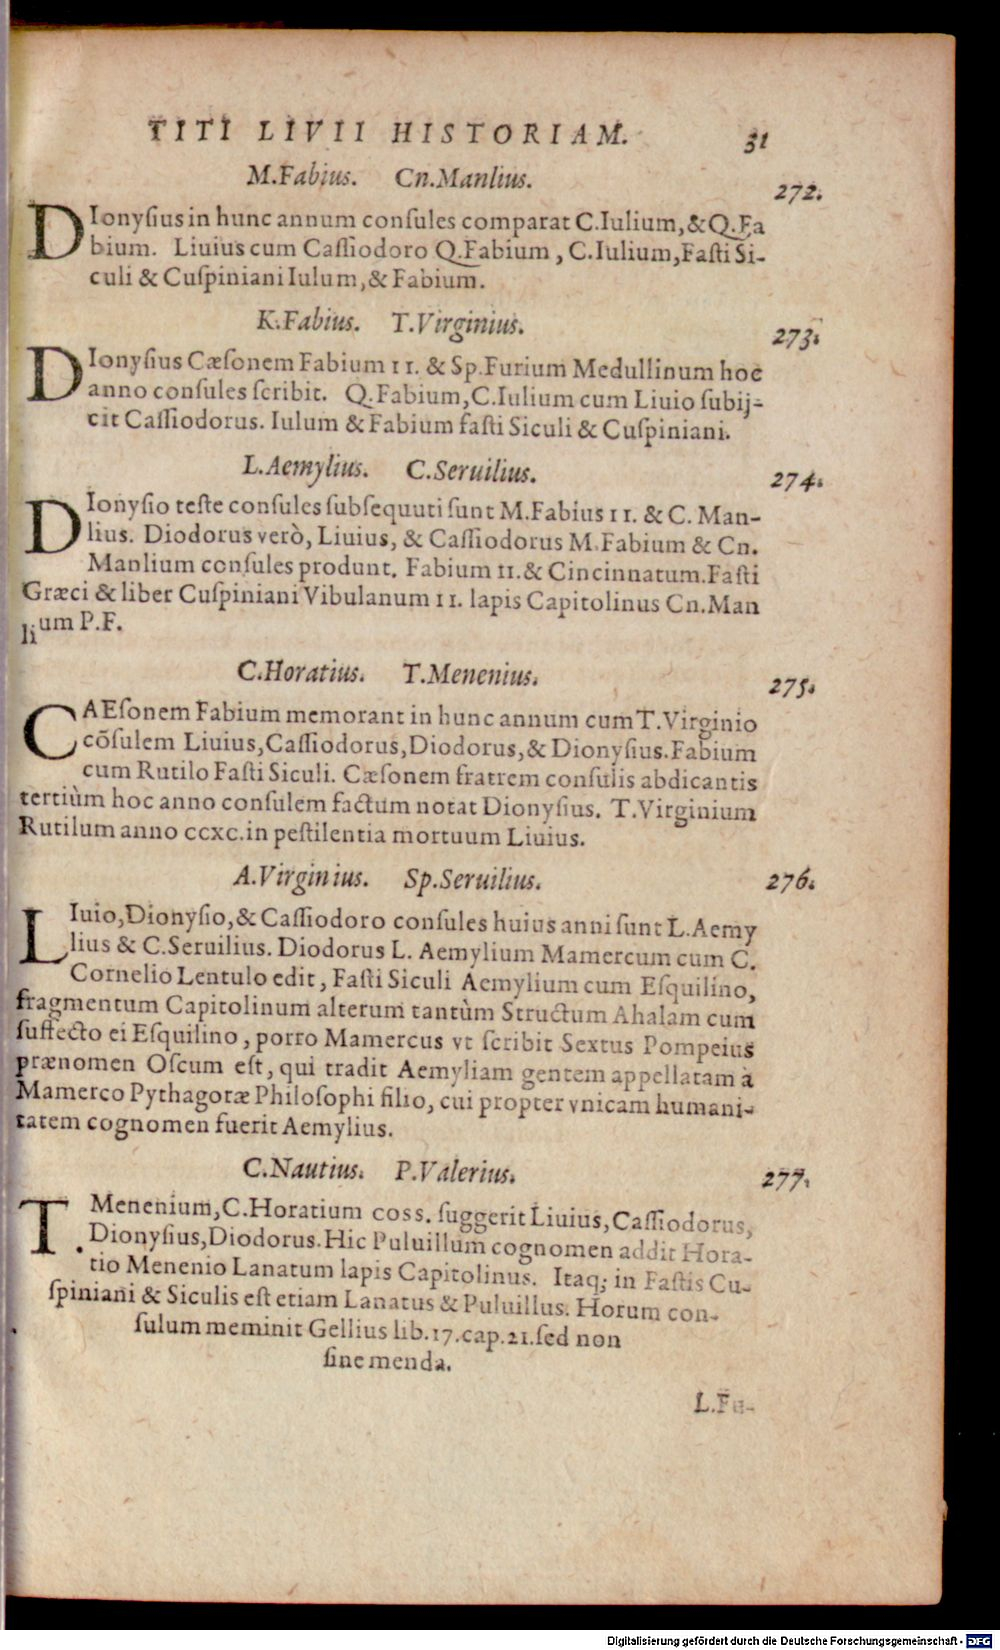 TITI LIVII HISTORIAM. 31
M.Fabius. Cn.Manlius. 272.
DIonyſius in hunc annum conſules comparat C.Iulium,&Q.Fa
bium. Liuius cum Caſſiodoro Q.Fabium, C.Iulium,Faſti Si-
culi & Cuſpiniani Iulum,& Fabium.
K.Fabius. T.Virginius. 273.
DIonyſius Cæſonem Fabium II. & Sp.Furium Medullinum hoc
anno conſules ſcribit. Q.Fabium,C.Iulium cum Liuio ſubij-
cit Caſſiodorus. Iulum & Fabium faſti Siculi & Cuſpiniani.
L.Aemylius. C.Seruilius. 274.
DIonyſio teſte conſules ſubſequuti ſunt M.Fabius II. & C. Man-
lius. Diodorus verò, Liuius, & Caſſiodorus M.Fabium & Cn.
Manlium conſules produnt. Fabium II.& Cincinnatum.Faſti
Græci & liber Cuſpiniani Vibulanum II. lapis Capitolinus Cn.Man
lium P.F.
C.Horatius. T.Menenius. 275.
CAEſonem Fabium memorant in hunc annum cum T.Virginio
cõſulem Liuius,Caſſiodorus,Diodorus,& Dionyſius.Fabium
cum Rutilo Faſti Siculi. Cæſonem fratrem conſulis abdicantis
tertiùm hoc anno conſulem factum notat Dionyſius. T.Virginium
Rutilum anno ccxc.in peſtilentia mortuum Liuius.
A.Virginius. Sp.Seruilius. 276.
LIuio,Dionyſio,& Caſſiodoro conſules huius anni ſunt L.Aemy
lius & C.Seruilius. Diodorus L. Aemylium Mamercum cum C.
Cornelio Lentulo edit, Faſti Siculi Aemylium cum Eſquilino,
fragmentum Capitolinum alterum tantùm Structum Ahalam cum
ſuffecto ei Eſquilino, porro Mamercus vt ſcribit Sextus Pompeius
prænomen Oſcum eſt, qui tradit Aemyliam gentem appellatam à
Mamerco Pythagoræ Philoſophi filio, cui propter vnicam humani-
tatem cognomen fuerit Aemylius.
C.Nautius. P.Valerius. 277.
T. Menenium,C.Horatium coss. ſuggerit Liuius,Caſſiodorus,
Dionyſius,Diodorus.Hic Puluillum cognomen addit Hora-
tio Menenio Lanatum lapis Capitolinus. Itaq; in Faſtis Cu-
ſpiniani & Siculis eſt etiam Lanatus & Puluillus. Horum con-
ſulum meminit Gellius lib.17.cap.21.ſed non
ſine menda.
L.Fu-
Digitalisierung gefördert durch die Deutsche Forschungsgemeinschaft - DFG